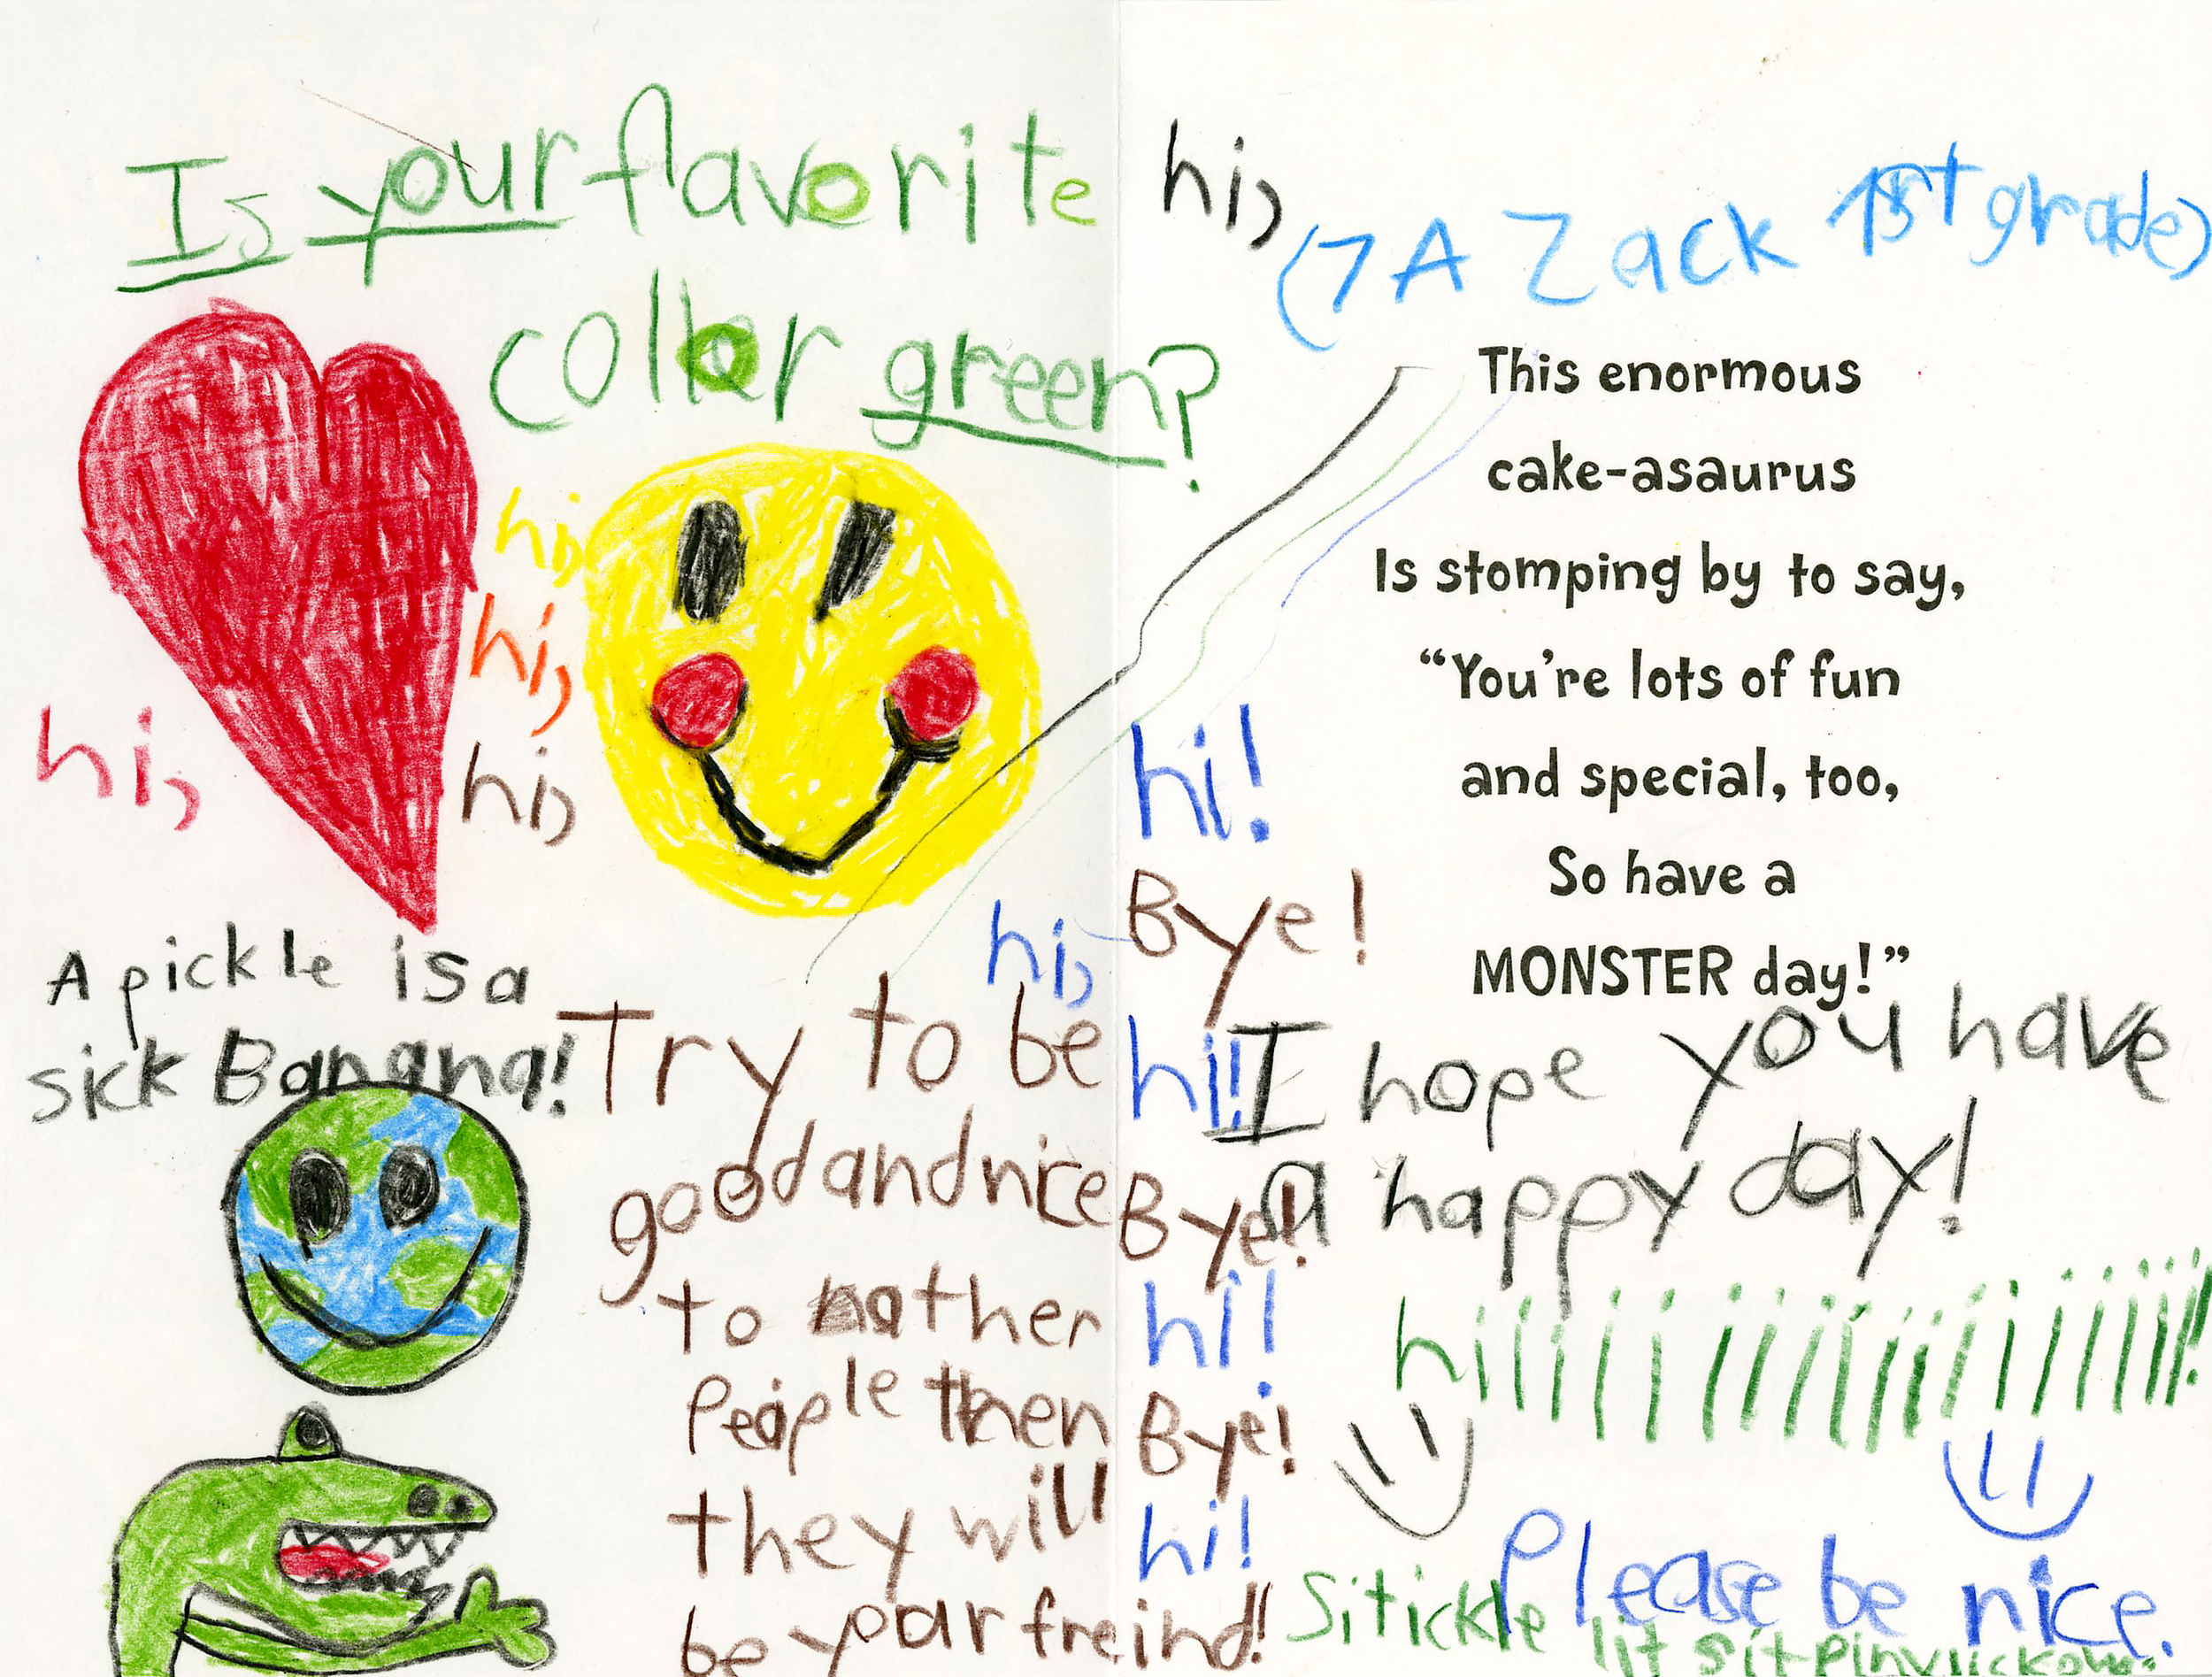 Is your favorite
coller green?
hi,
hi,
hi,
hi,
hi,
A pickle is a
sick Banana!
Try to be
good and nice
to nother
Peaple then
they will
be yoar freind!
hi,
(7 A Zack 1st grade)
This enormous
cake-asaurus
Is stomping by to say,
“You’re lots of fun
and special, too,
So have a
MONSTER day!”
hi!
Bye!
hi!
Bye!
hi!
Bye!
hi!
I hope you have
a happy day!
hiiiiiiiiiiiiiiiiiiii!
Please be nice.
Sitickle